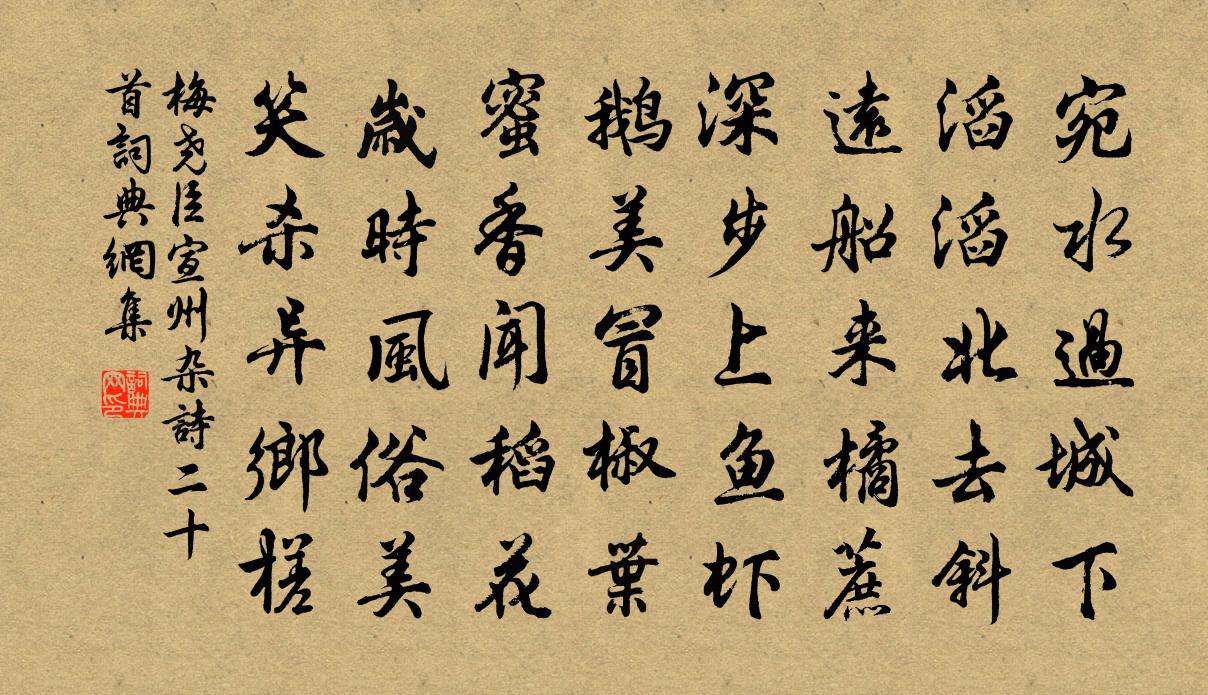 宛水過城下
滔滔北去斜
遠船来橘蔗
深步上鱼虾
鹅美冒椒葉
蜜香聞稻花
歲時風俗美
笑杀异鄉槎
梅尧臣宣州杂詩二十
首詞典網集
詞典
网印